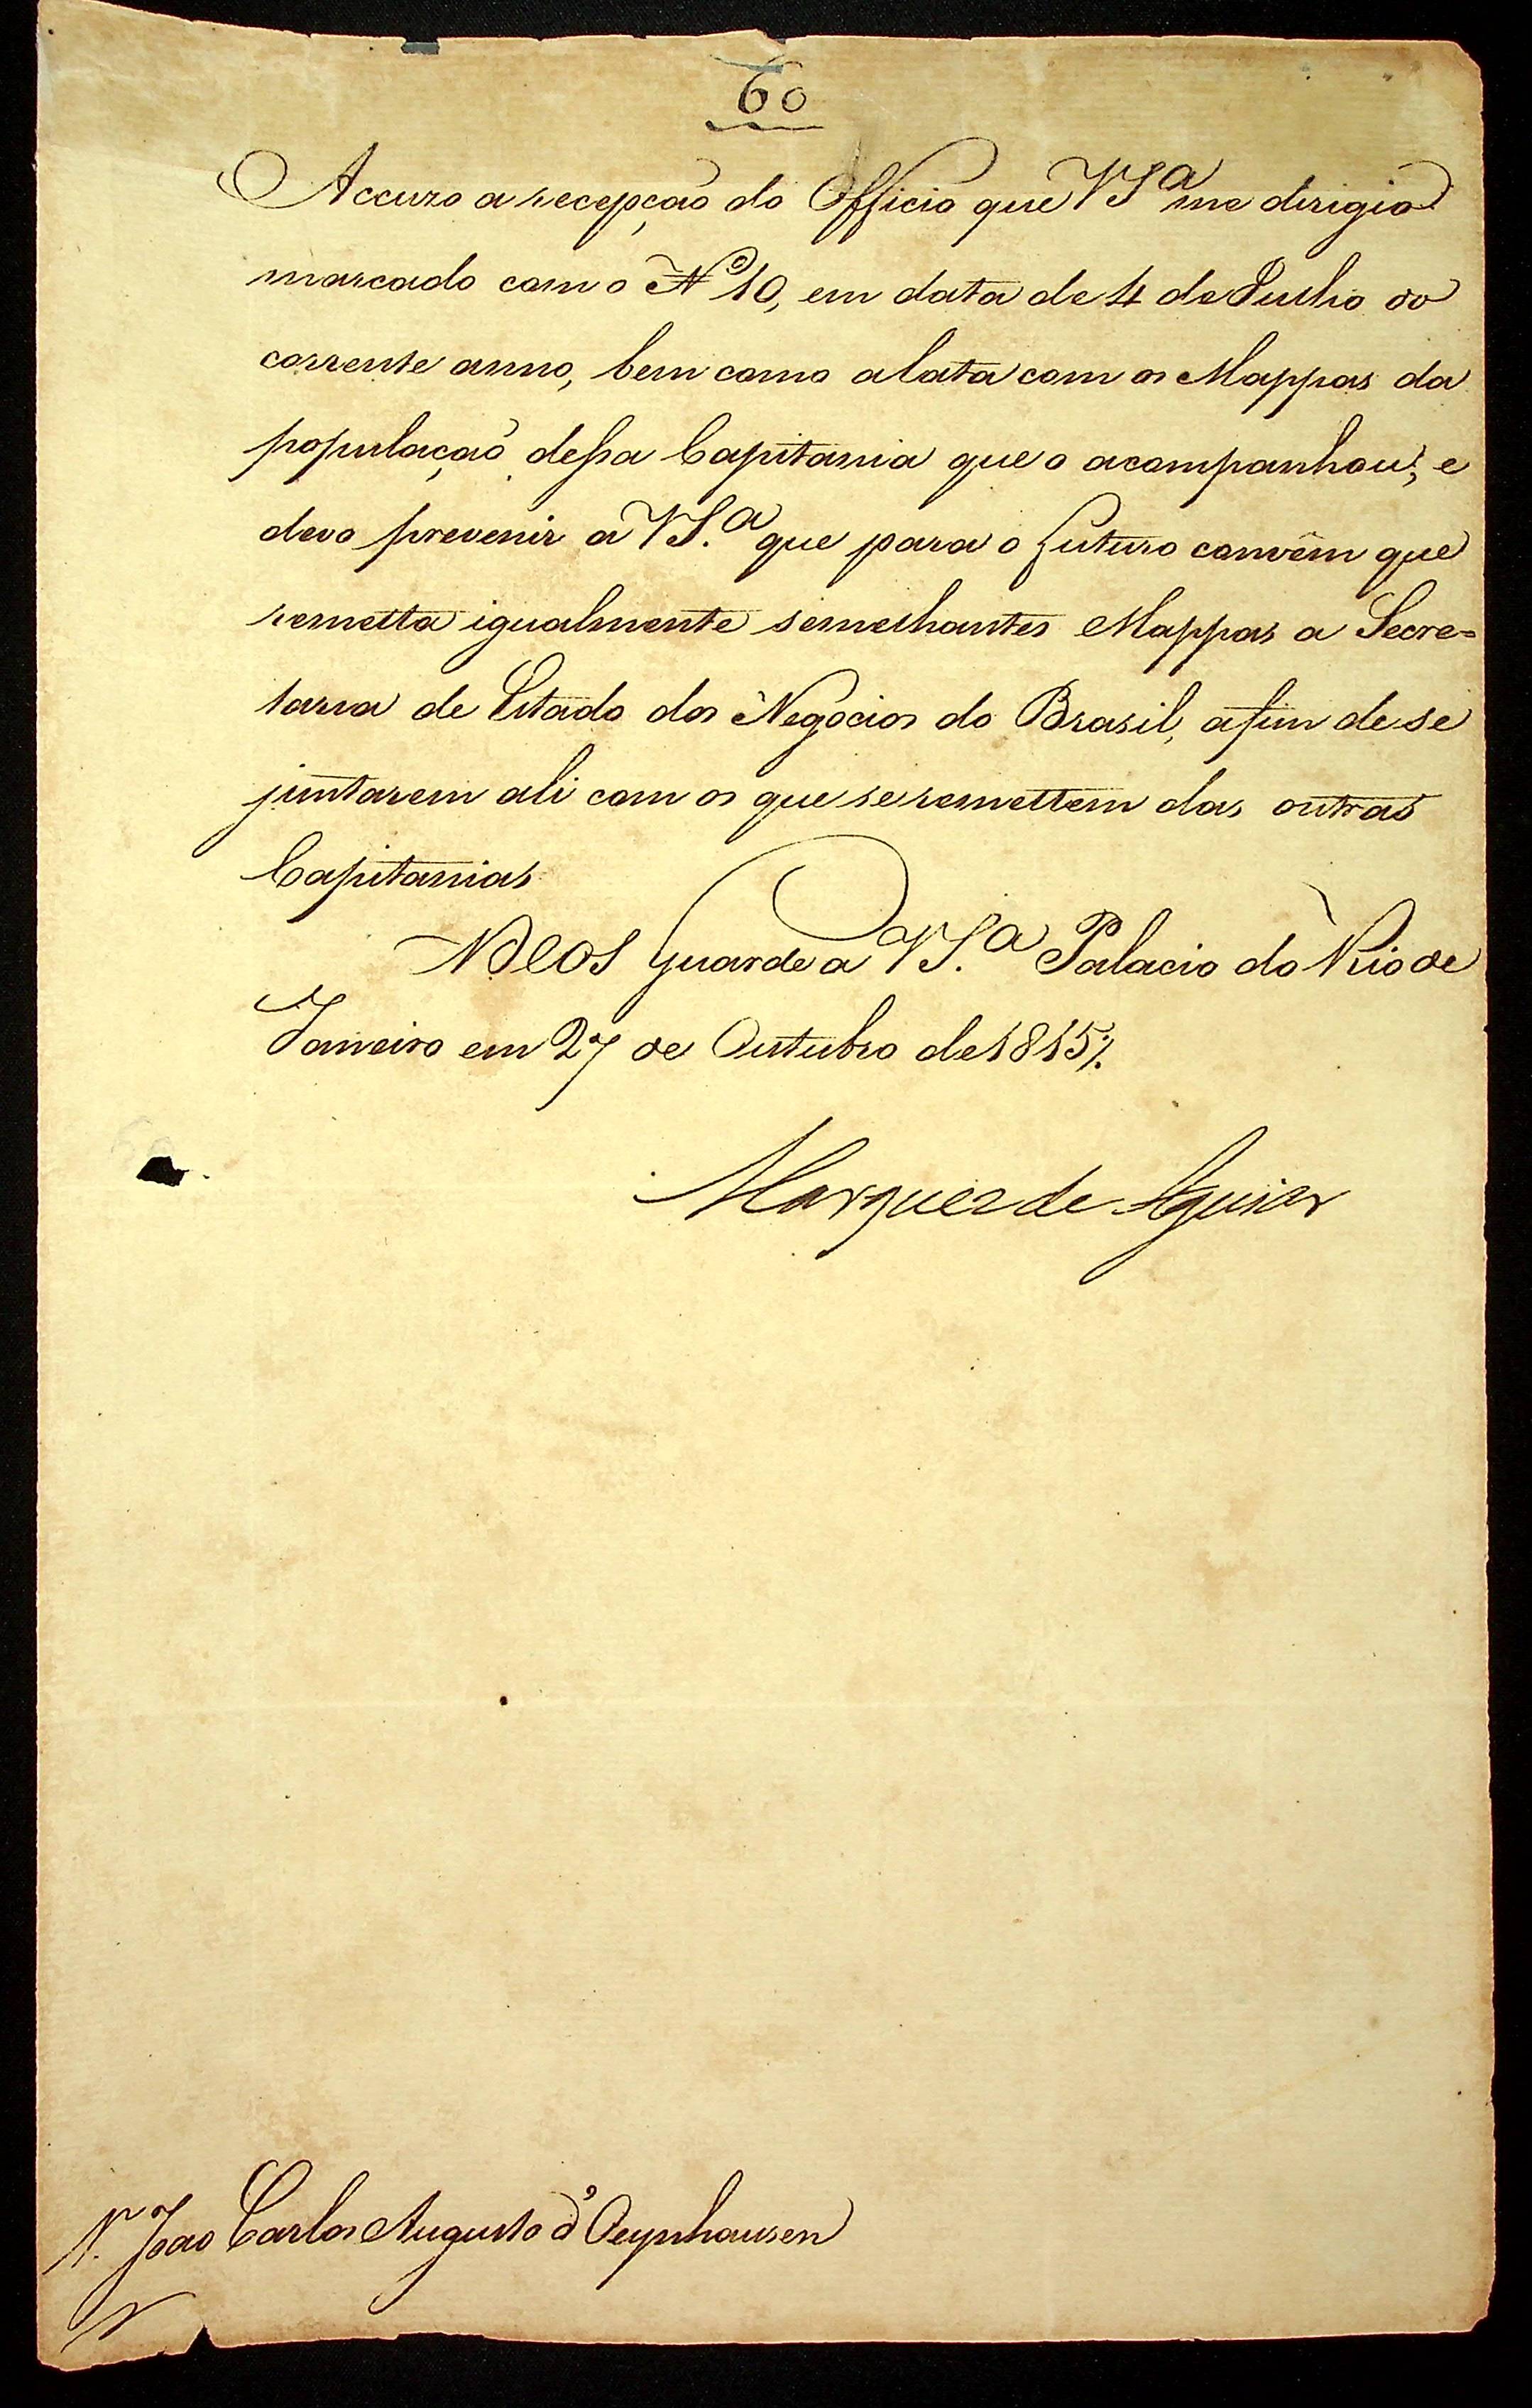 60
Accuzo a recepção do Officio que VS.ª me dirigio
marcado com o Nº 10, em data de 4 de Julho do
corrente anno, bem como a lata com os Mappas da
população dessa Capitania que o acompanhou; e
devo prevenir a VS.ª que para o futuro convêm que
remetta igualmente semelhantes Mappas a Secre=
taria de Estado dos Negocios do Brasil, afim de se
juntarem ali com os que se remettem das outras
Capitanias
Deos Guarde a VS.ª Palacio do Rio de
Janeiro em 27 de Outubro de 1815
Marquez de Aguiar
João Carlos Augusto d'Oeynhausen